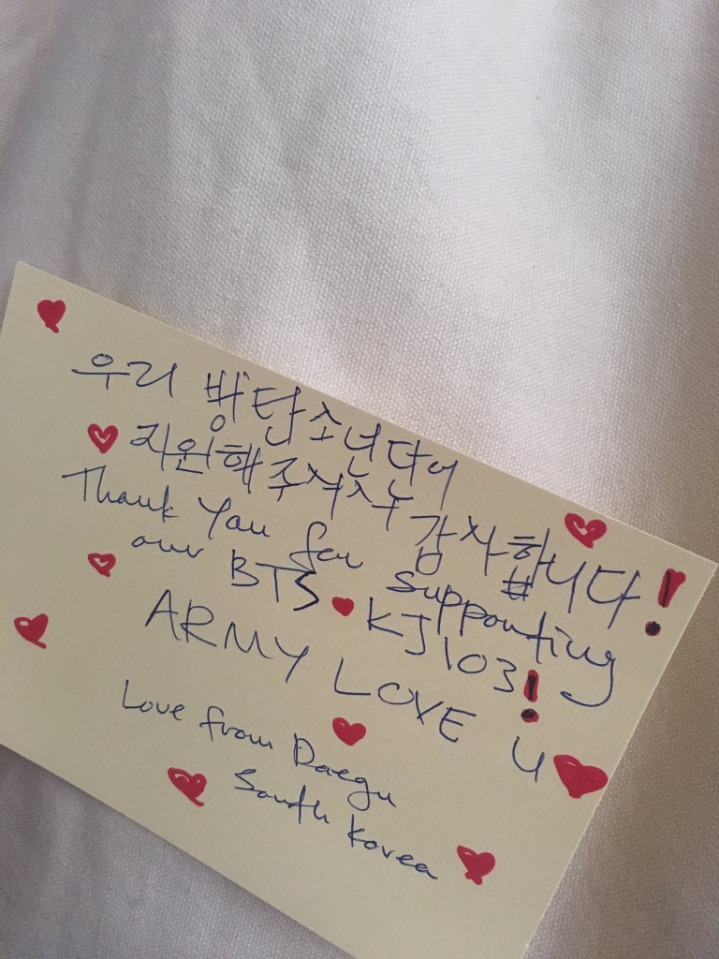 우리 방탄소년단어
지원해 주셔서 감사합니다!
Thank You for supporting
our BTS KJ103!
ARMY LOVE U
Love from Daegu
South Korea